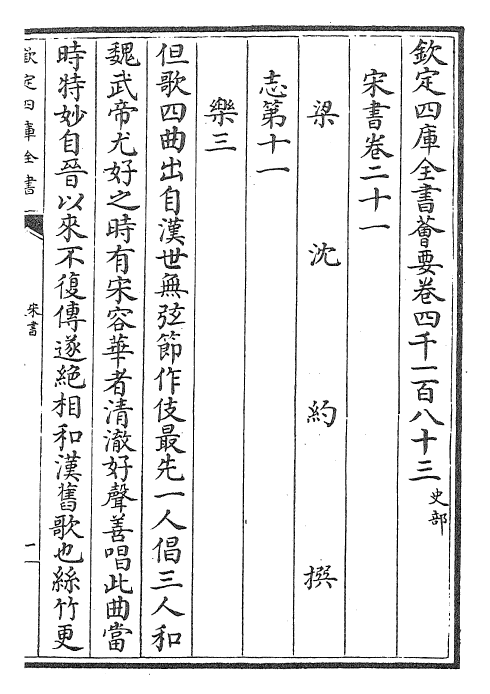 欽定四庫全書薈要卷四千一百八十三 史部
宋書卷二十一
梁 沈 約 撰
志第十一
樂三
但歌四曲出自漢世無弦節作伎最先一人倡三人和
魏武帝尤好之時有宋容華者清澈好聲善唱此曲當
時特妙自晉以來不復傳遂絶相和漢舊歌也絲竹更
欽定四庫全書
宋書
一